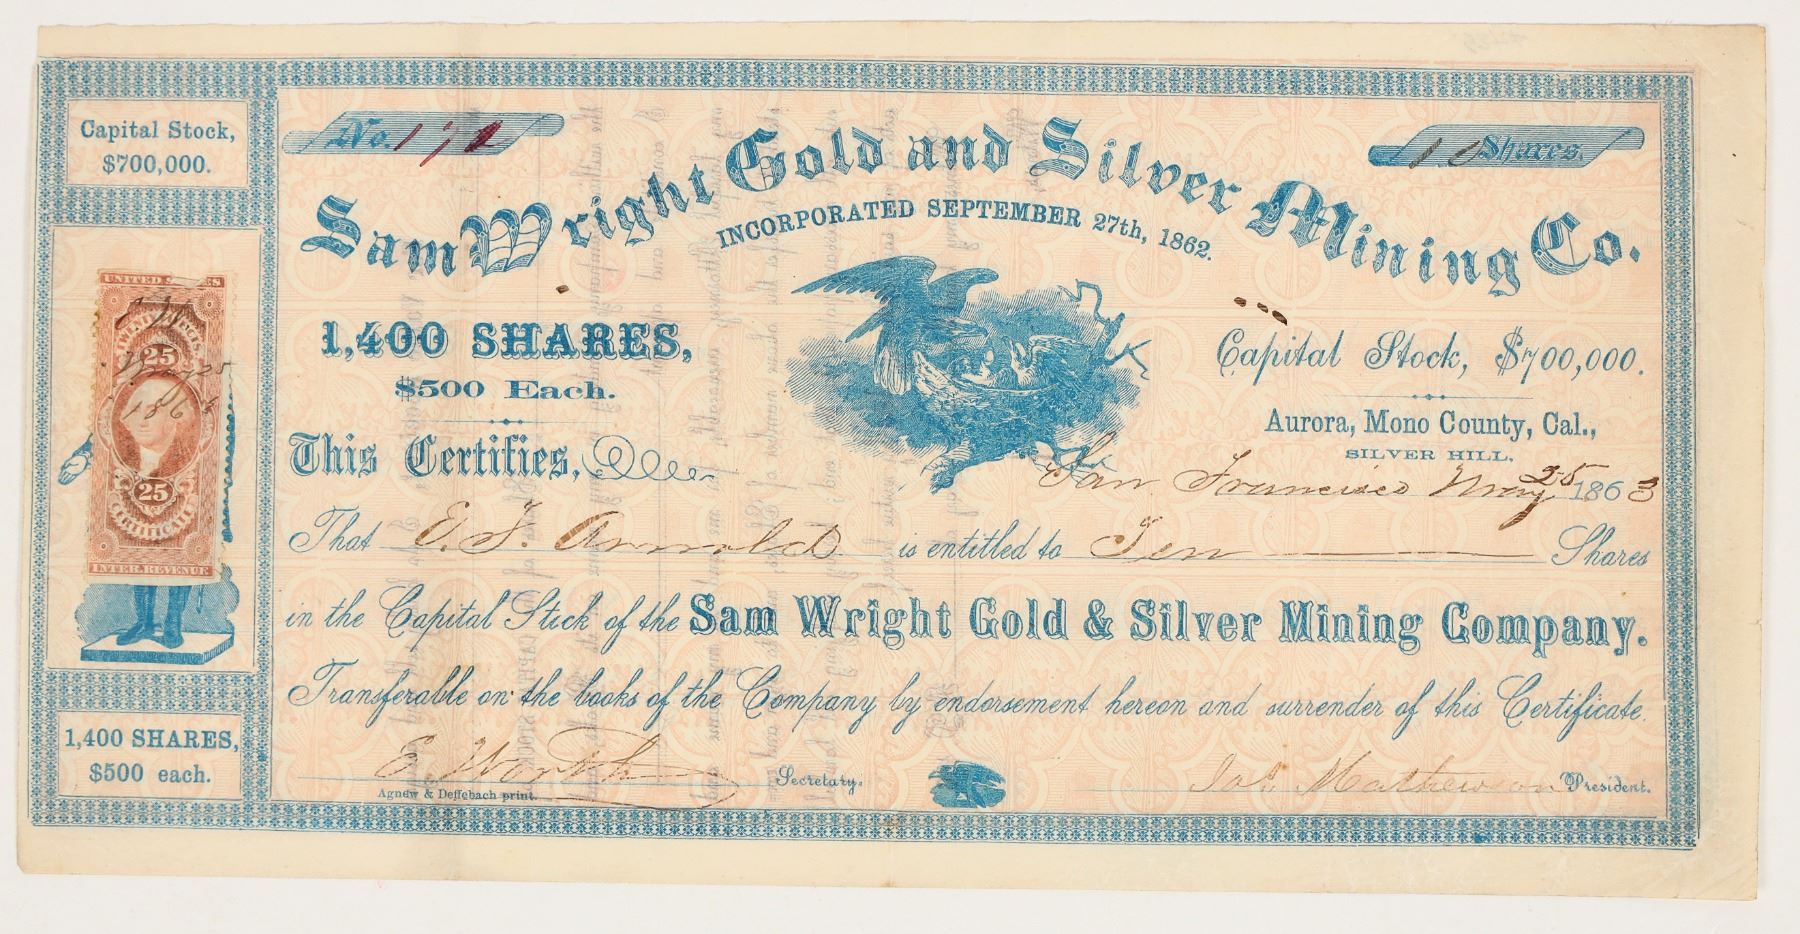 Capital Stock,
$700,000.
No. 171
10 Shares.
Sam Wright Gold and Silver Mining Co.
INCORPORATED SEPTEMBER 27th, 1862.
1,400 SHARES,
$500 Each.
Capital Stock, $700,000.
Aurora, Mono County, Cal.,
SILVER HILL,
UNITED STATES
25
May 25
1863
25
CERTIFICATE
INTER. REVENUE
This Certifies,
San Francisco May 25 1863
That E. F. Arnold is entitled to Ten Shares
in the Capital Stock of the Sam Wright Gold & Silver Mining Company.
Transferable on the books of the Company by endorsement hereon and surrender of this Certificate.
1,400 SHARES,
$500 each.
E. Worth Secretary.
Jas Mathewson President.
Agnew & Deffebach print.